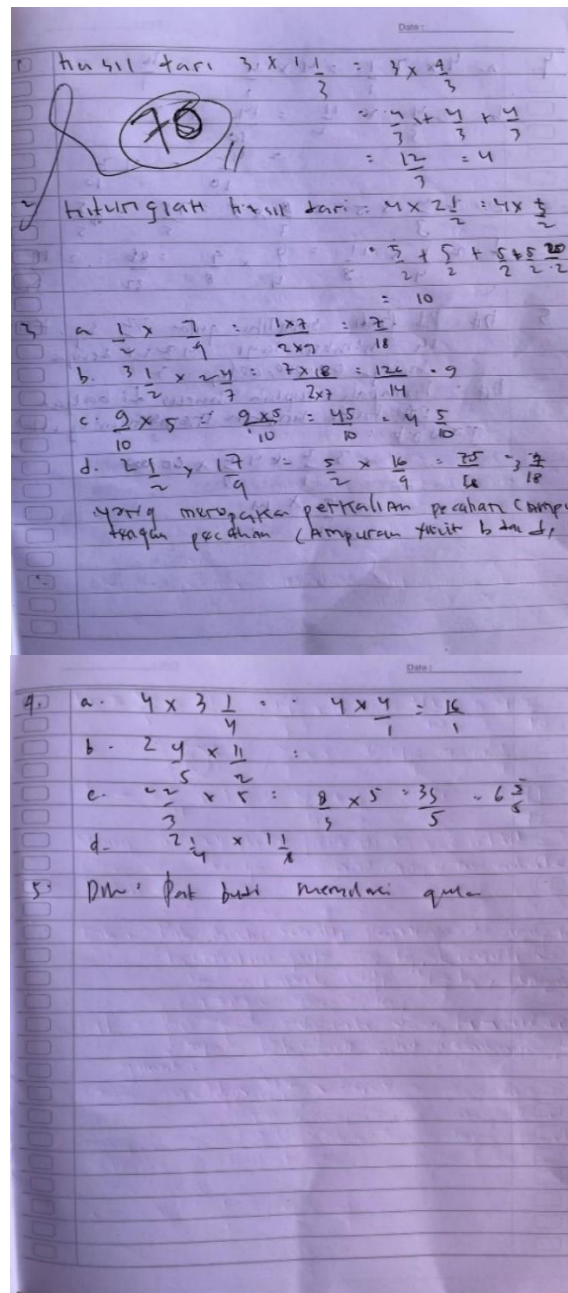 Date :
1. hasil dari 3 × 1 1/3 = 3 × 4/3
= 4/3 + 4/3 + 4/3
70
= 12/3 = 4
2. Hitunglah hasil dari = 4 × 2 1/2 = 4 × 5/2
= 5/2 + 5/2 + 5/2 + 5/2 20/2
= 10
3. a. 1/2 × 7/9 = 1×7/2×9 = 7/18
b. 3 1/2 × 2 4/7 = 7×18/2×7 = 126/14 = 9
c. 9/10 × 5 = 9×5/10 = 45/10 = 4 5/10
d. 2 1/2 × 1 7/9 = 5/2 × 16/9 = 75/18 = 3 7/18
yang merupaka perkalian pecahan Camp
dengan pecahan Campuran b dan d,
Date :
4. a. 4 × 3 1/4 = 4 × 4/1 = 16/1
b. 2 4/5 × 11/2 =
c. 2/3 × 5 = 8/5 × 5 = 35/5 = 6 5/5
d. 2 1/4 × 1
5. Dik : Pak budi gula